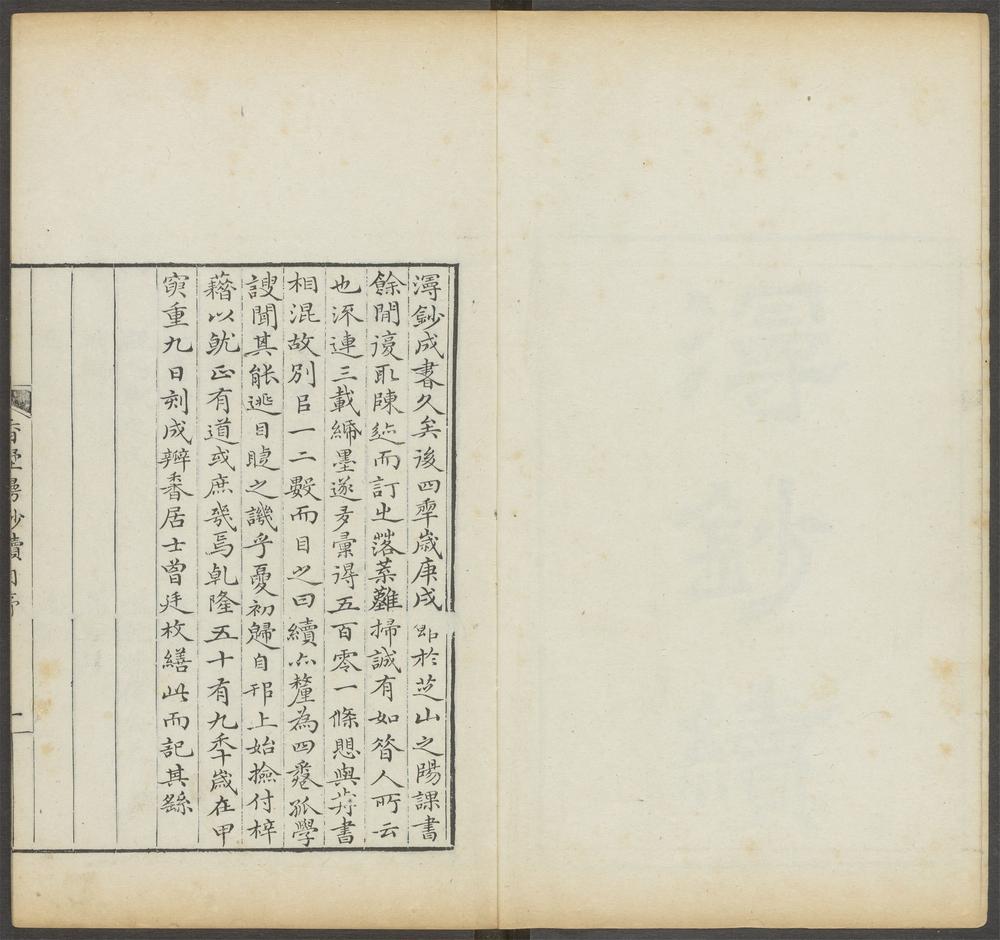 潯鈔成書久矣後四秊歲庚戌卽於芝山之陽課書
餘閒復取陳迹而訂之落葉難掃誠有如昝人所云
也深連三載緟墨遂多彙得五百零一條恐與前書
相混故別㠯一二數而目之曰續亦釐為四卷孤學
謏聞其能逃目睫之譏乎憂初歸自邗上始撿付梓
藉以就正有道或庶幾焉乹隆五十有九秊歲在甲
寅重九日刻成辦香居士曾廷枚繕此而記其繇
香墅潯鈔續目序
一